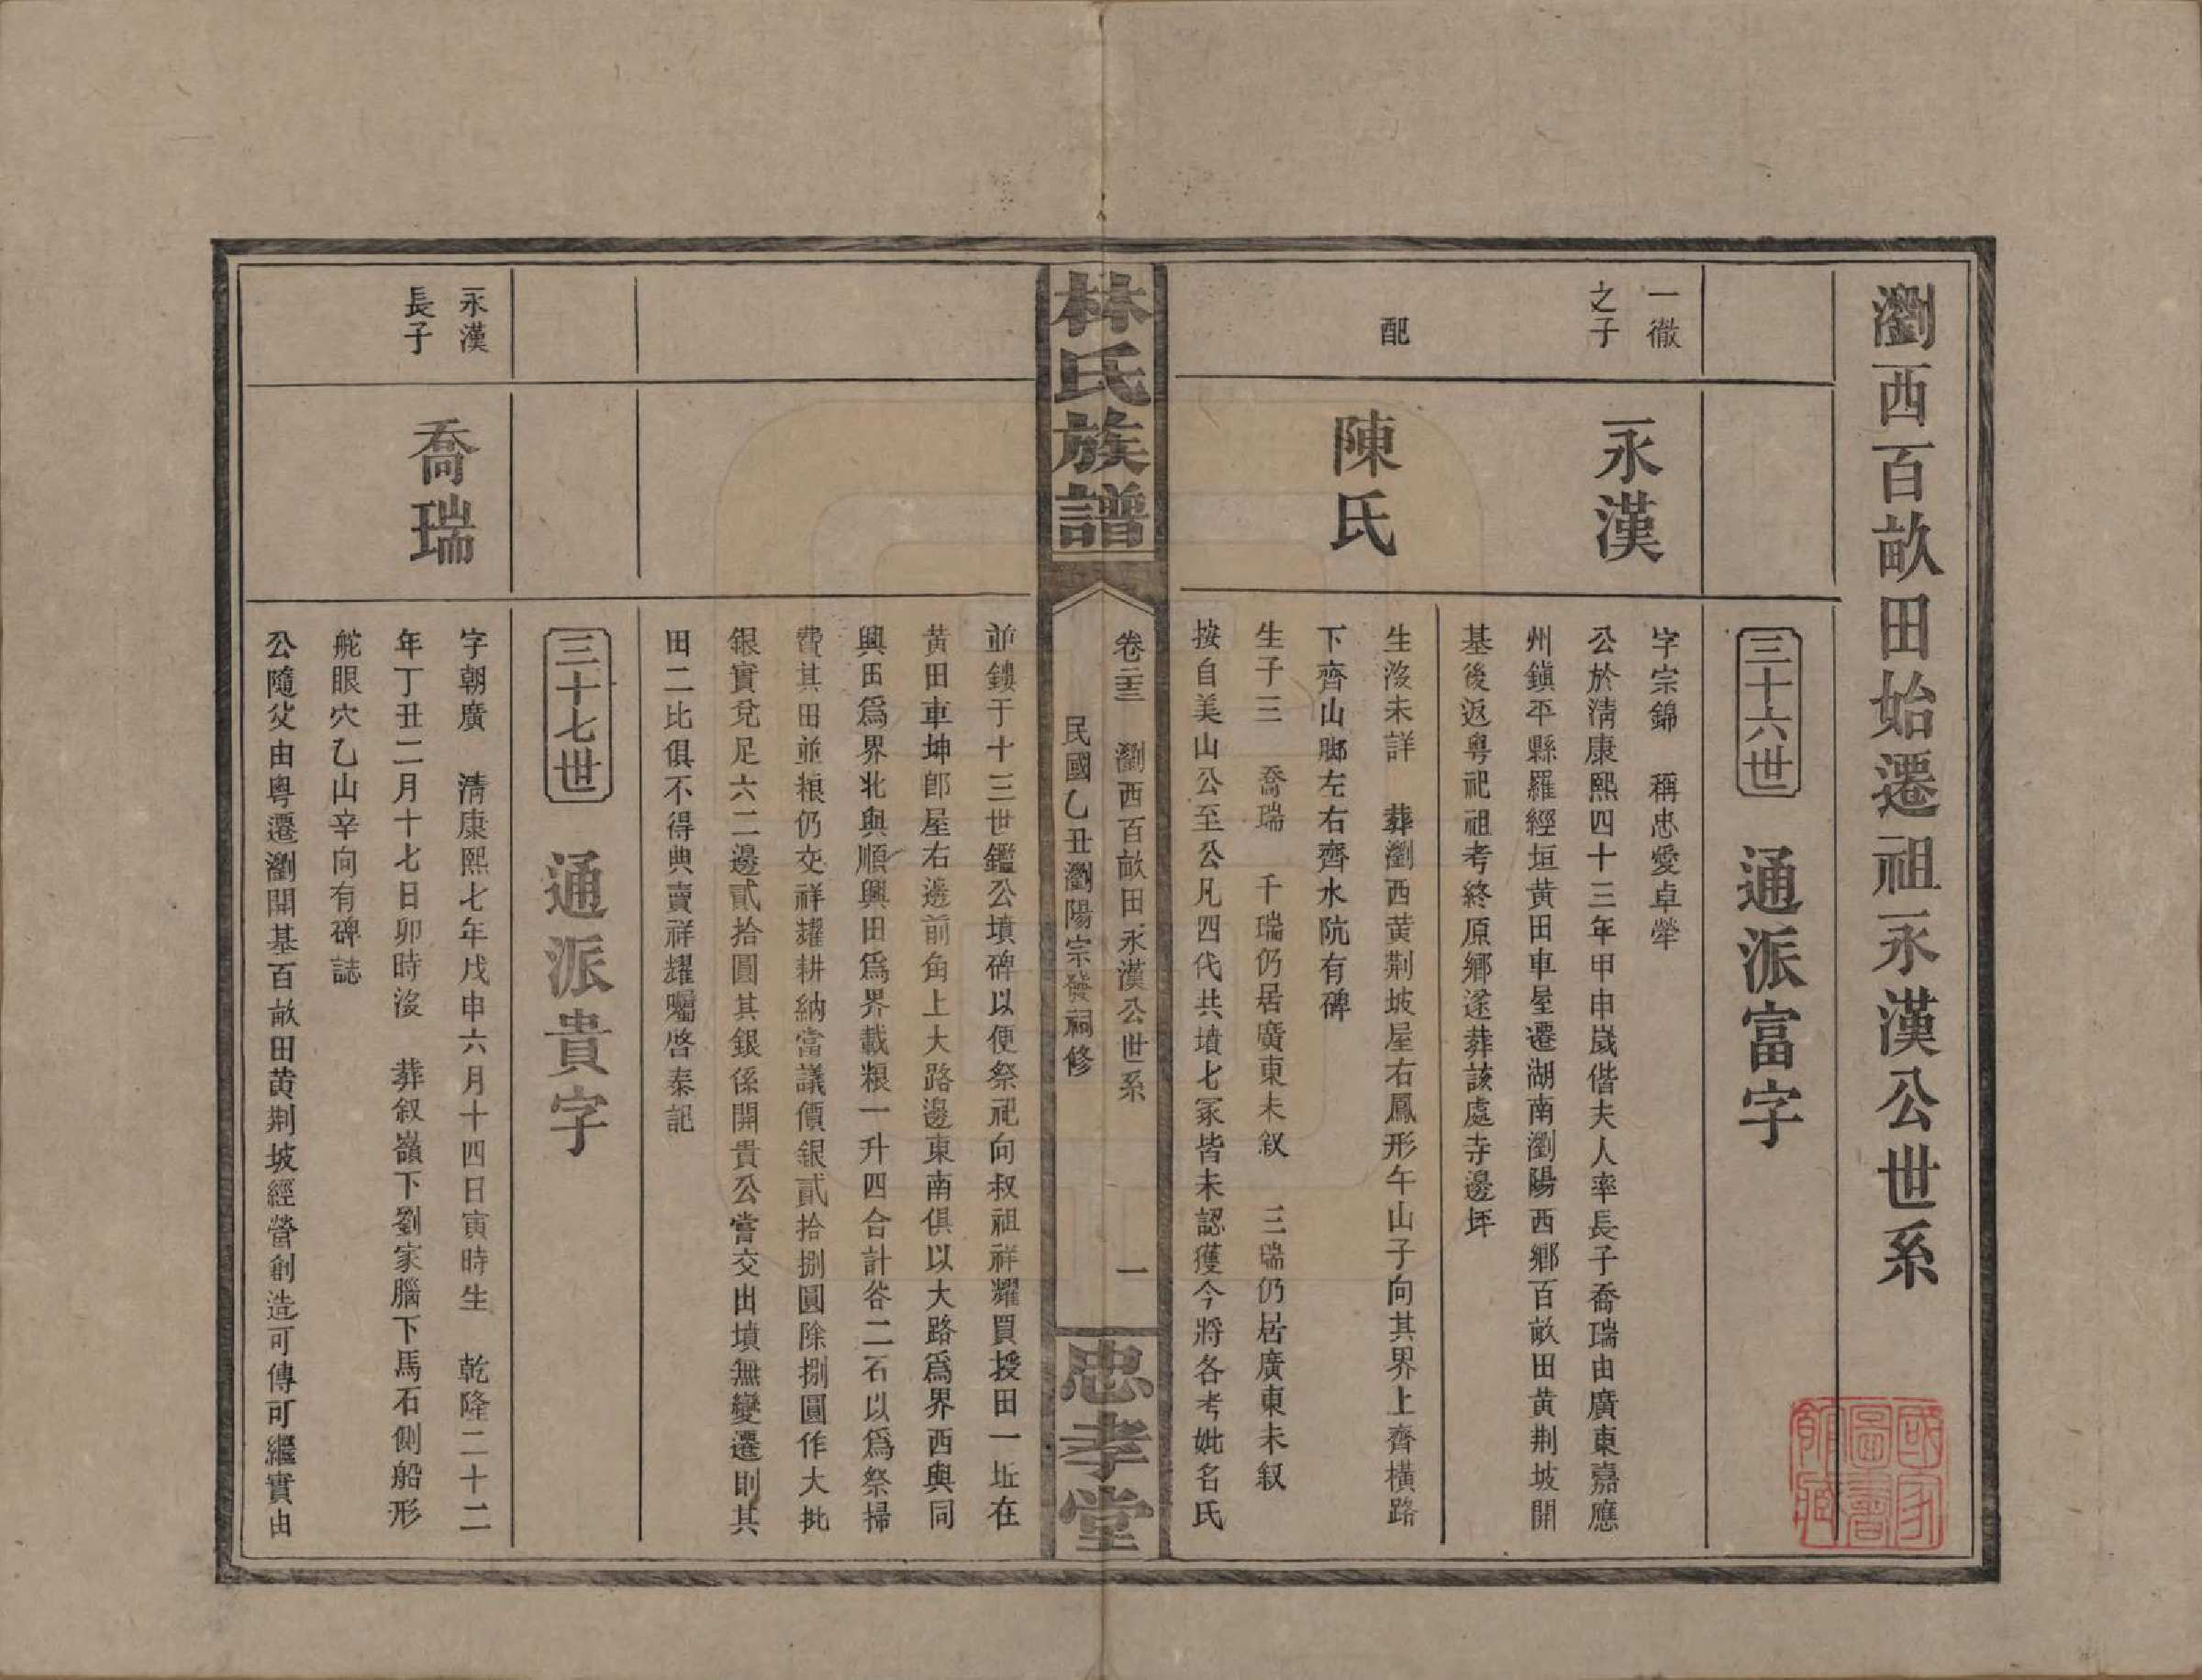 瀏西百畝田始遷祖永漢公世系
三十六世　通派富字
一徹
之子
永漢
字宗錦　稱忠愛卓犖
公於淸康熙四十三年甲申歲偕夫人率長子喬瑞由廣東嘉應
州鎭平縣羅經垣黃田車屋遷湖南瀏陽西鄉百畝田黃荆坡開
基後返粵祀祖考終原鄉遂葬該處寺邊坪
配
陳氏
生沒未詳　葬瀏西黃荆坡屋右鳳形午山子向其界上齊橫路
下齊山腳左右齊水阬有碑
生子三　喬瑞　千瑞仍居廣東未叙　三瑞仍居廣東未叙
按自美山公至公凡四代共墳七冢皆未認獲今將各考妣名氏
林氏族譜
卷二十三　瀏西百畝田永漢公世系　一
民國乙丑瀏陽宗發祠修
忠孝堂
並鏤于十三世鑑公墳碑以便祭祀向叔祖祥耀買授田一坵在
黃田車坤卽屋右邊前角上大路邊東南俱以大路爲界西與同
興田爲界北與順興田爲界載粮一升四合計谷二石以爲祭掃
費其田並粮仍交祥耀耕納當議價銀貳拾捌圓除捌圓作大批
銀實兌足六二邊貳拾圓其銀係開貴公嘗交出墳無變遷則其
田二比俱不得典賣祥耀囑啓泰記
三十七世　通派貴字
永漢
長子
喬瑞
字朝廣　淸康熙七年戊申六月十四日寅時生　乾隆二十二
年丁丑二月十七日卯時沒　葬叙嶺下劉家腦下馬石側船形
舵眼穴乙山辛向有碑誌
公隨父由粵遷瀏開基百畝田黃荆坡經營創造可傳可繼實由
國家圖書館藏